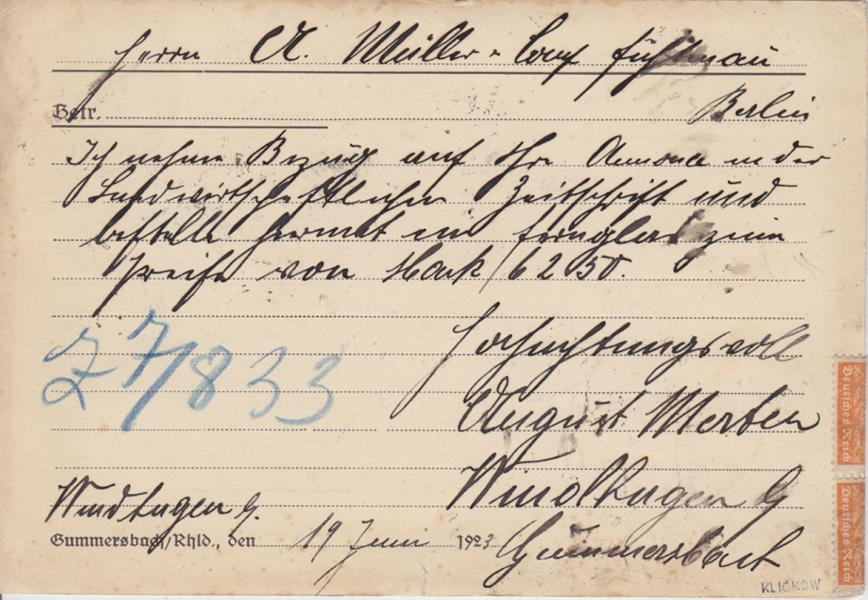 Herrn A. Müller
Betr. Berlin
Ich nehme Bezug auf Ihre Annonce in der
Landwirtschaftlichen Zeitschrift und
bestelle hiermit ein Fernglas zum
Preise von Mark 6250.
27/833
Hochachtungsvoll
August Merten
Windhagen
Windhagen b.
Gummersbach/Rhld., den 19 Juni 1923
Gummersbach
KLICKOW
Deutsches Reich
Deutsches Reich